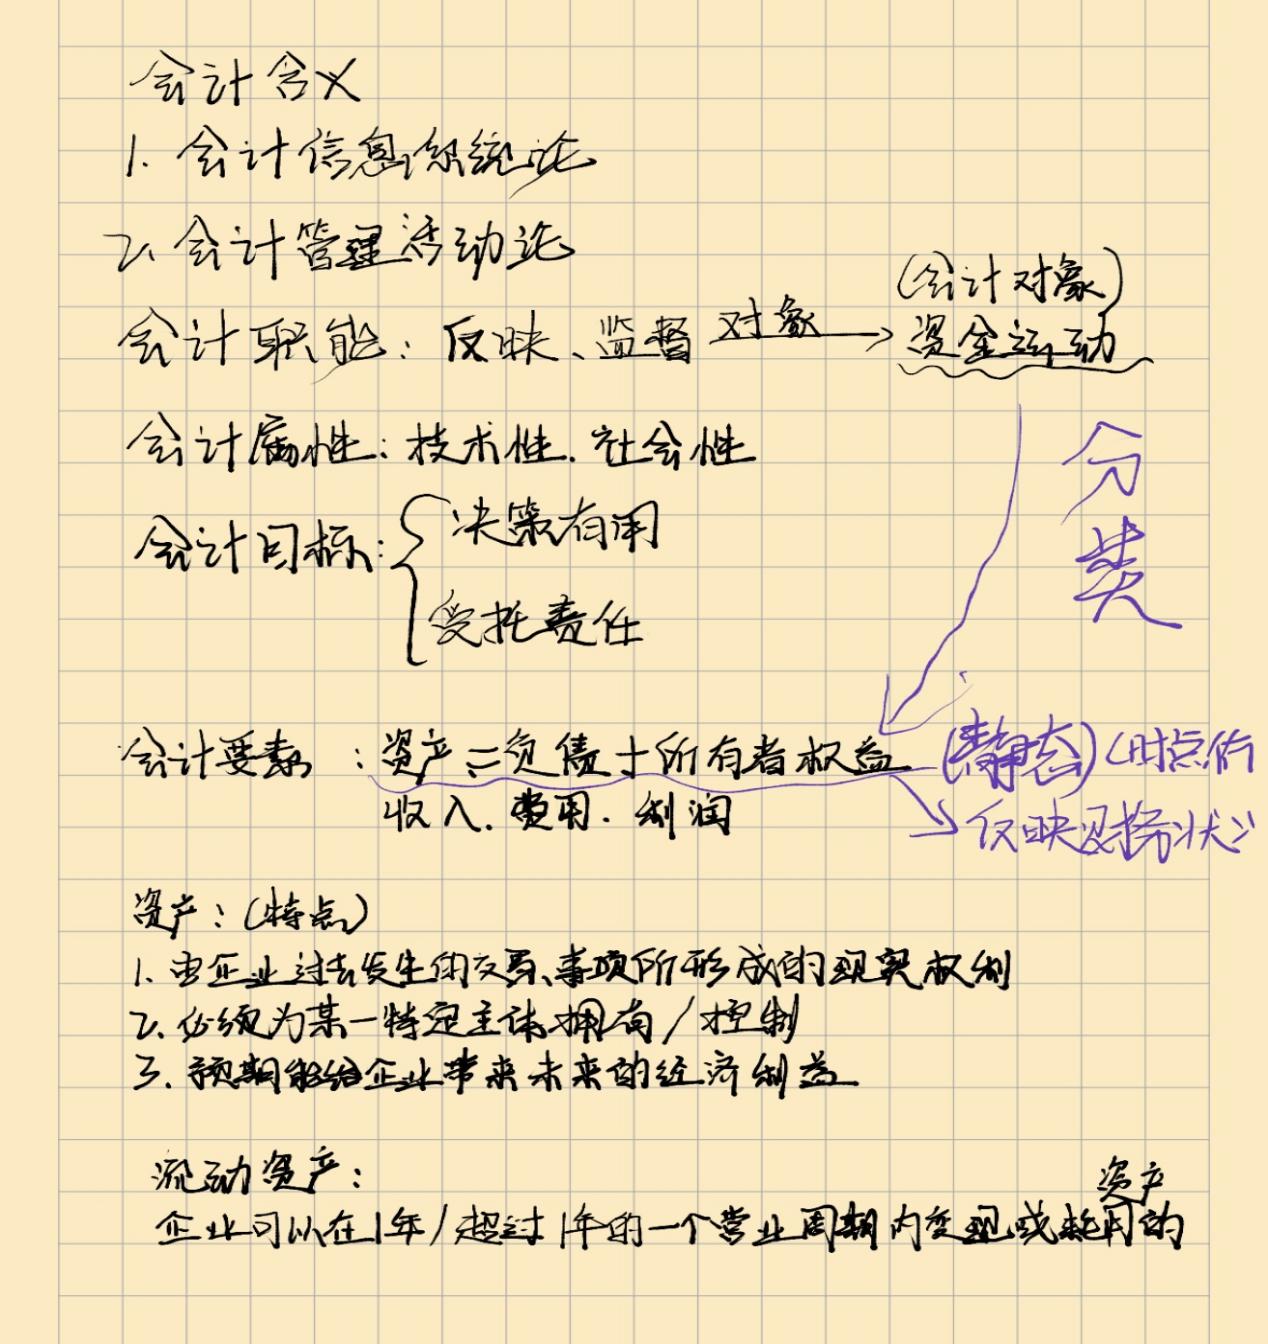 会计含义
1. 会计信息系统论
2. 会计管理活动论
(会计对象)
会计职能：反映、监督 对象 资金运动
分类
会计属性：技术性、社会性
会计目标：决策有用
受托责任
会计要素：资产＝负债＋所有者权益 (静态)(时点
收入、费用、利润 反映财务状
资产：(特点)
1. 由企业过去发生的交易、事项所形成的现实权利
2. 必须为某一特定主体拥有/控制
3. 预期能给企业带来未来的经济利益
流动资产：
资产
企业可以在1年/超过1年的一个营业周期内变现或耗用的